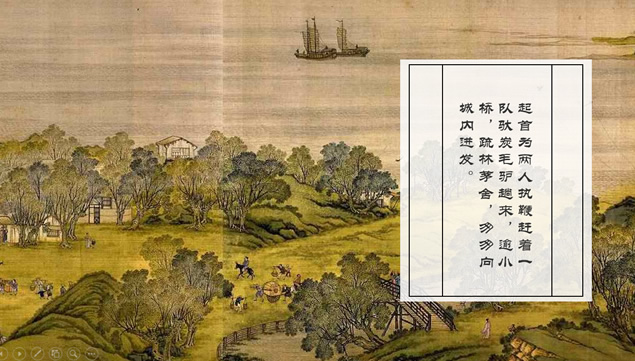 起首为两人执鞭赶着一
队驮炭毛驴趟来，逾小
桥，疏林茅舍，匆匆向
城内进发。